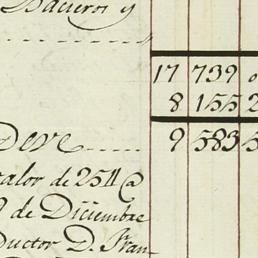 Baceros y
17 739 0
8 155 2
Deve 9 583 5
valor de 251 @
9 de Diciembre
ductor D. Fran-